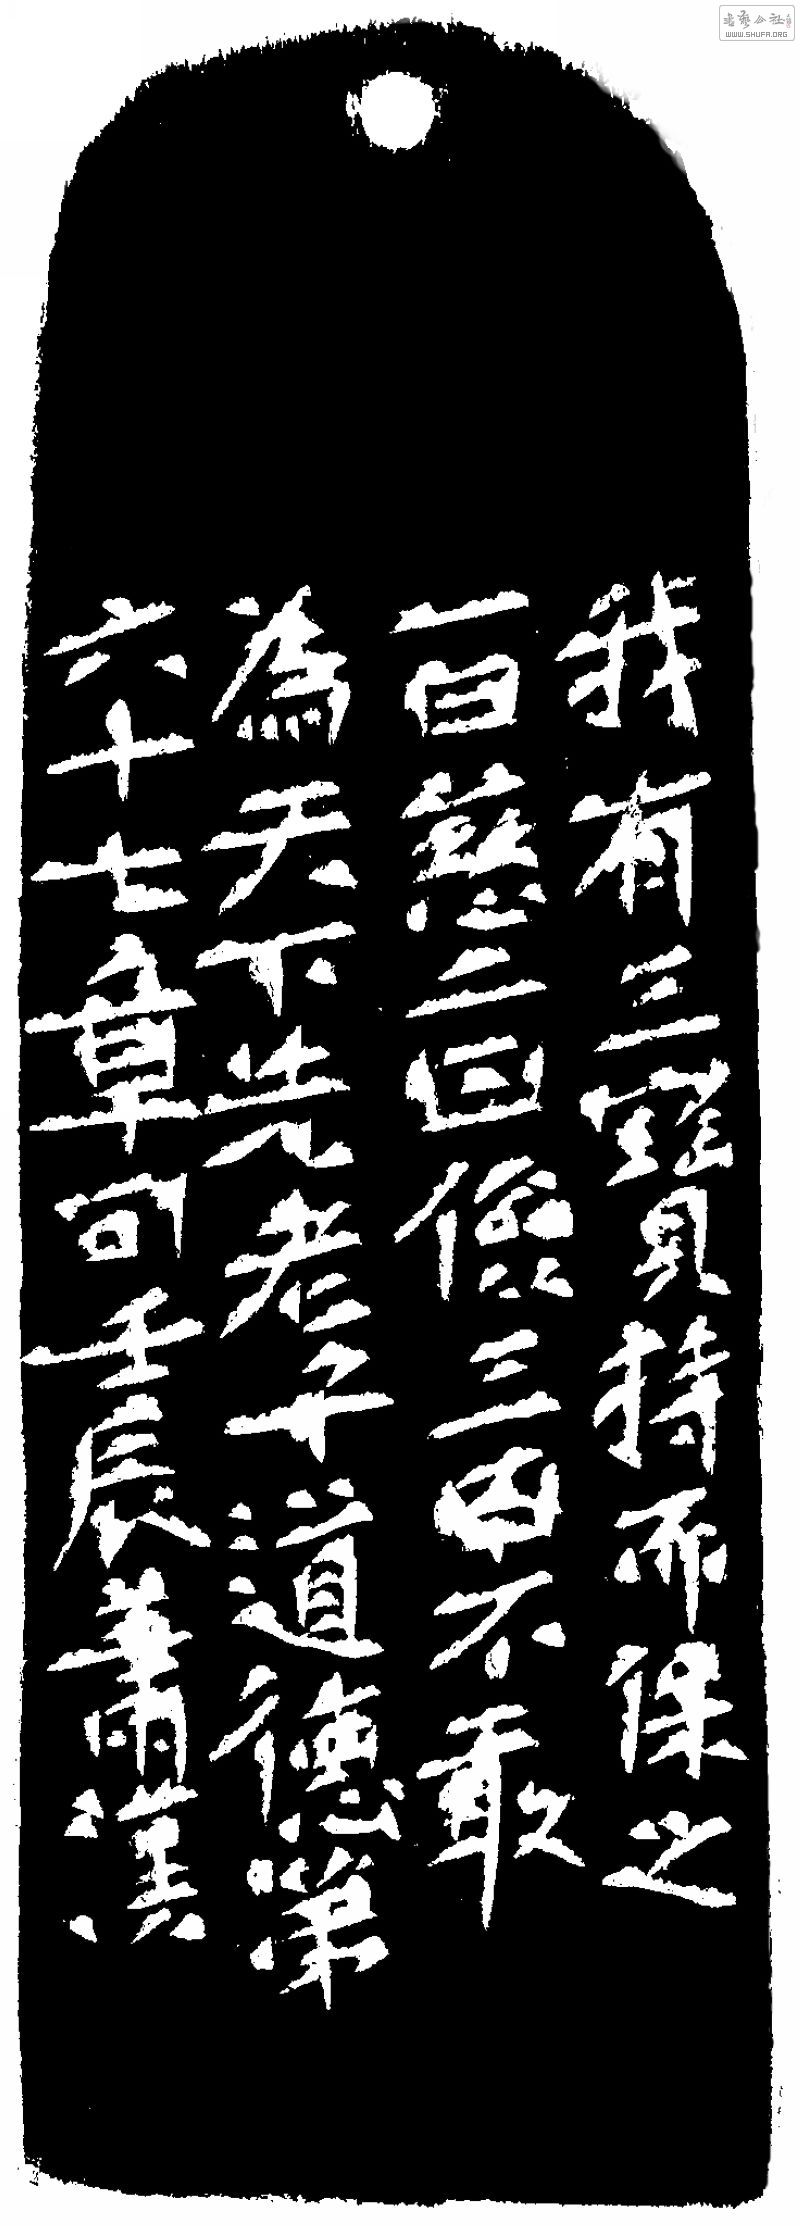 我有三寶持而保之
一曰慈二曰儉三曰不敢
為天下先老子道德第
六十七章句壬辰蕭漢
书艺公社
WWW.SHUFA.ORG